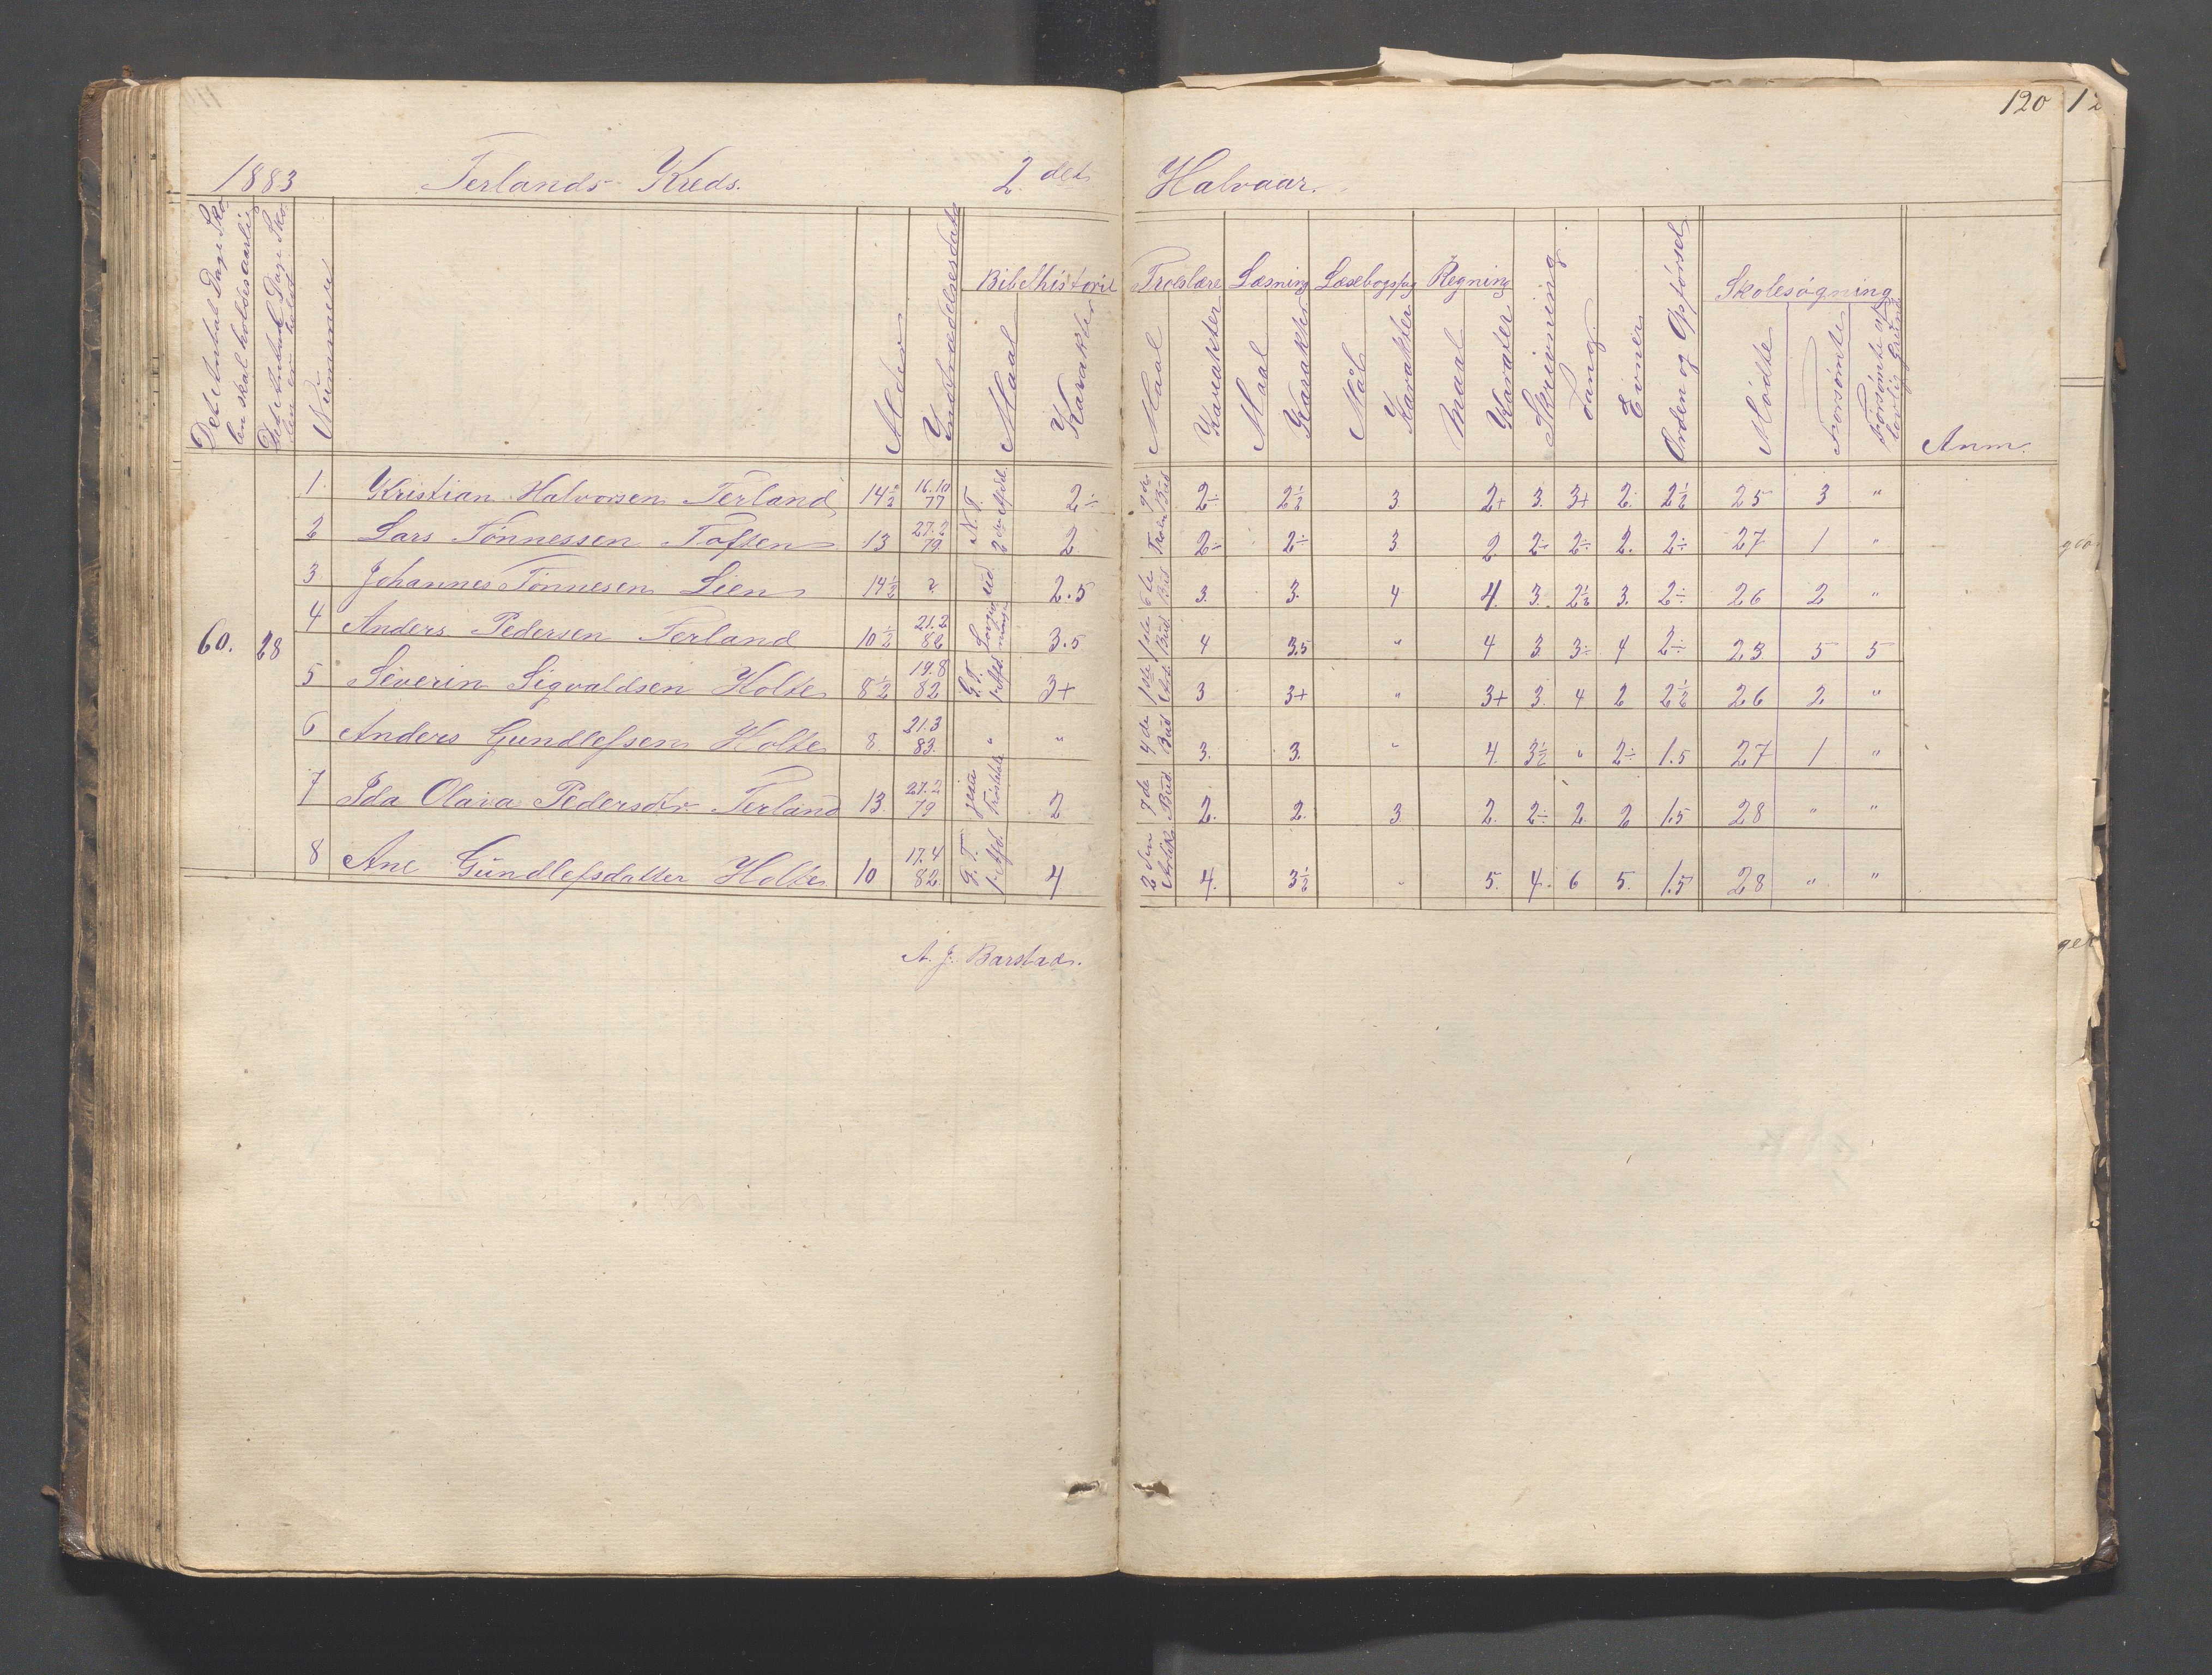 120
1883 Terlands Kreds. 2det Halvaar.
Det Antal Dage Skolen skal holdes aarlig
Det Antal Dage Skolen er holdt
Nummer
Alder
Indtrædelsesdato
Bibelhistorie
Maal
Karakter
Troeslære
Maal
Karakter
Læsning
Maal
Karakter
Læsebogsfag
Mål
Karakter
Regning
Maal
Karater
Skrivning
Sang
Evner
Orden og Opførsel
Skolesøgning
Mødte
Forsømte
Forsømte af lovlig Grund
Anm.
60. 28
1. Kristian Halvorsen Terland 14½ 16.10 77 N.T. 2den Afd. 2÷ 2÷ 2½ 3 2+ 3. 3+ 2. 2½ 25 3 "
2 Lars Tønnessen Toften 13 27.2 79 2 2÷ 2÷ 3 2 2÷ 2÷ 2. 2÷ 27 1 "
3 Johannes Tønnesen Lien 14½ ? 2.5 6te Bud 3. 3. 4 4. 3. 2½ 3. 2÷ 26 2 "
4 Anders Pedersen Terland 10½ 21.2 82 3.5 1ste Bud 4 3.5 " 4 3 3÷ 4 2÷ 23 5 5
5 Severin Sigvaldsen Holte 8½ 19.8 82 G.T. 1 Afd. 3+ 1ste Art. 3 3+ " 3+ 3. 4 2 2½ 26 2 "
6 Anders Gundlefsen Holte 8. 21.3 83. " " 4de Bud 3. 3. " 4. 3½ " 2÷ 1.5 27 1 "
7 Ida Olava Pedersdtr. Terland 13. 27.2 79 2 7de Bud. 2. 2. 3 2. 2÷ 2 2 1.5 28 " "
8 Ane Gundlefsdatter Holte 10 17.4 82. G.T. 1 Afd. 4 2den Artik. 4. 3½ " 5. 4. 6 5. 1.5 28 " "
A. J. Barstad.